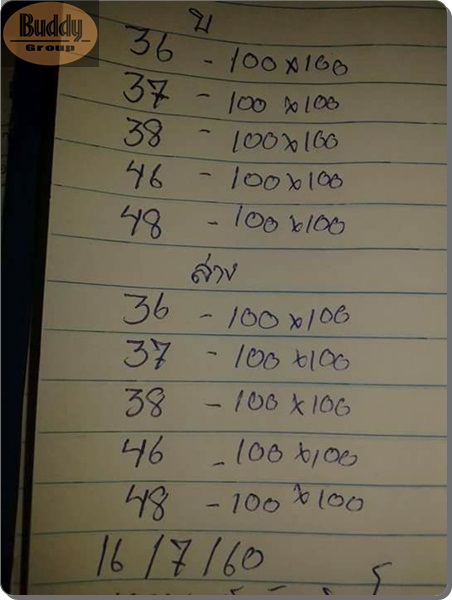 Buddy
Group
บ
36 - 100x100
37 - 100x100
38 - 100x100
46 - 100x100
48 - 100x100
ล่าง
36 - 100x100
37 - 100x100
38 - 100x100
46 - 100x100
48 - 100x100
16/7/60